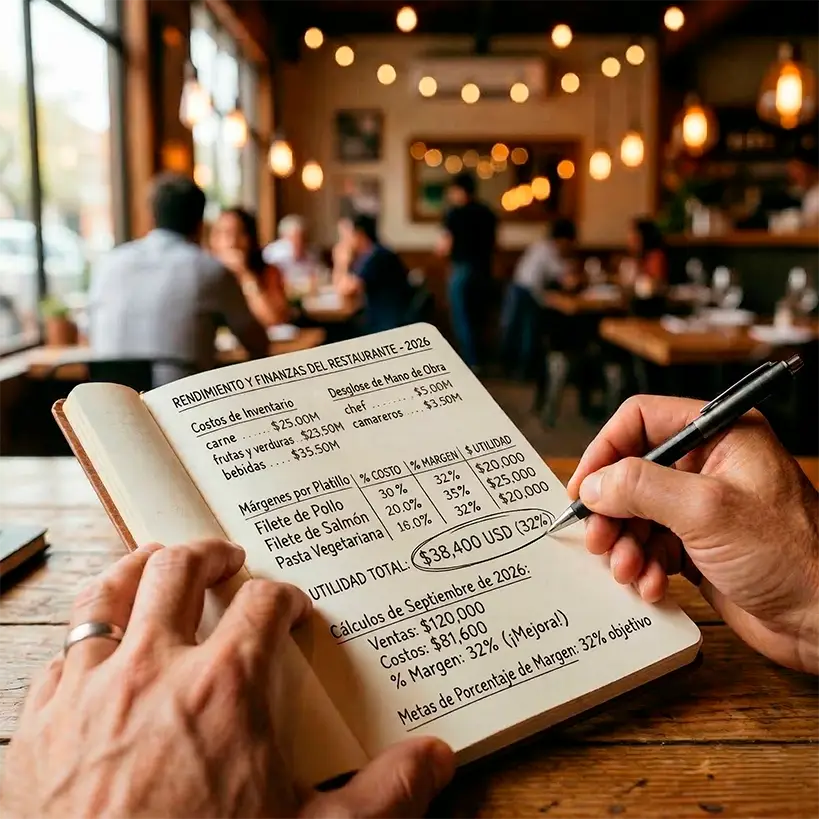 RENDIMIENTO Y FINANZAS DEL RESTAURANTE - 2026
Costos de Inventario
carne ...... $25.00M
frutas y verduras .. $23.50M
bebidas .... $35.50M
Desglose de Mano de Obra
chef .......... $5,00M
camareros ...... $3.50M
Márgenes por Platillo % COSTO % MARGEN $ UTILIDAD
Filete de Pollo 30% 32% $20,000
Filete de Salmón 20.0% 35% $25,000
Pasta Vegetariana 16.0% 32% $20,000
UTILIDAD TOTAL: $38,400 USD (32%)
Cálculos de Septiembre de 2026:
Ventas: $120,000
Costos: $81,600
% Margen: 32% (¡Mejora!)
Metas de Porcentaje de Margen: 32% objetivo